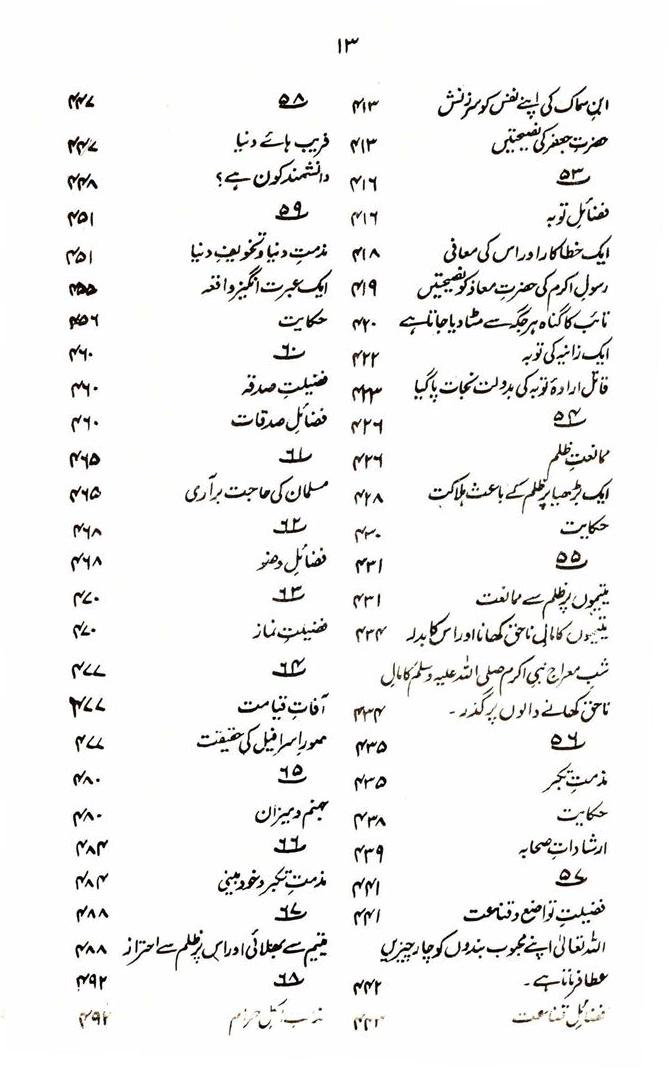 ۱۳
ابنِ سماک کی اپنے نفس کو سرزنش ۴۱۳
حضرت جعفر کی نصیحتیں ۴۱۳
۵۳ ۴۱۶
فضائلِ توبہ ۴۱۶
ایک خطا کار اور اس کی معافی ۴۱۸
رسولِ اکرم کی حضرت معاذ کو نصیحتیں ۴۱۹
تائب کا گناہ ہر جگہ سے مٹا دیا جاتا ہے ۴۲۰
ایک زانیہ کی توبہ ۴۲۲
قاتل ارادۂ توبہ کی بدولت نجات پا گیا ۴۲۳
۵۴ ۴۲۶
ممانعتِ ظلم ۴۲۶
ایک بڑھیا پر ظلم کے باعث ہلاکت ۴۲۸
حکایت ۴۳۰
۵۵ ۴۳۱
یتیموں پر ظلم سے ممانعت ۴۳۱
یتیموں کا مال ناحق کھانا اور اس کا بدلہ ۴۳۴
شبِ معراج نبی اکرم صلی اللہ علیہ وسلم کا مالِ
ناحق کھانے والوں پر گذر۔ ۴۳۴
۵۶ ۴۳۵
مذمتِ تکبر ۴۳۵
حکایت ۴۳۸
ارشاداتِ صحابہ ۴۳۹
۵۷ ۴۴۱
فضیلتِ تواضع و قناعت ۴۴۱
اللہ تعالیٰ اپنے محبوب بندوں کو چار چیزیں
عطا فرماتا ہے۔ ۴۴۲
فضائلِ قناعت ۴۴۳
۵۸ ۴۴۷
فریب ہائے دنیا ۴۴۷
دانشمند کون ہے؟ ۴۴۸
۵۹ ۴۵۱
مذمتِ دنیا و تخویفِ دنیا ۴۵۱
ایک عبرت انگیز واقعہ ۴۵۵
حکایت ۴۵۶
۶۰ ۴۶۰
فضیلتِ صدقہ ۴۶۰
فضائلِ صدقات ۴۶۰
۶۱ ۴۶۵
مسلمان کی حاجت برآری ۴۶۵
۶۲ ۴۶۸
فضائلِ وضو ۴۶۸
۶۳ ۴۷۰
فضیلتِ نماز ۴۷۰
۶۴ ۴۷۷
آفاتِ قیامت ۴۷۷
صورِ اسرافیل کی حقیقت ۴۷۷
۶۵ ۴۸۰
جہنم و میزان ۴۸۰
۶۶ ۴۸۴
مذمتِ تکبر و خود بینی ۴۸۴
۶۷ ۴۸۸
یتیم سے بھلائی اور اس پر ظلم سے احتراز ۴۸۸
۶۸ ۴۹۲
اکلِ حرام ۴۹۲